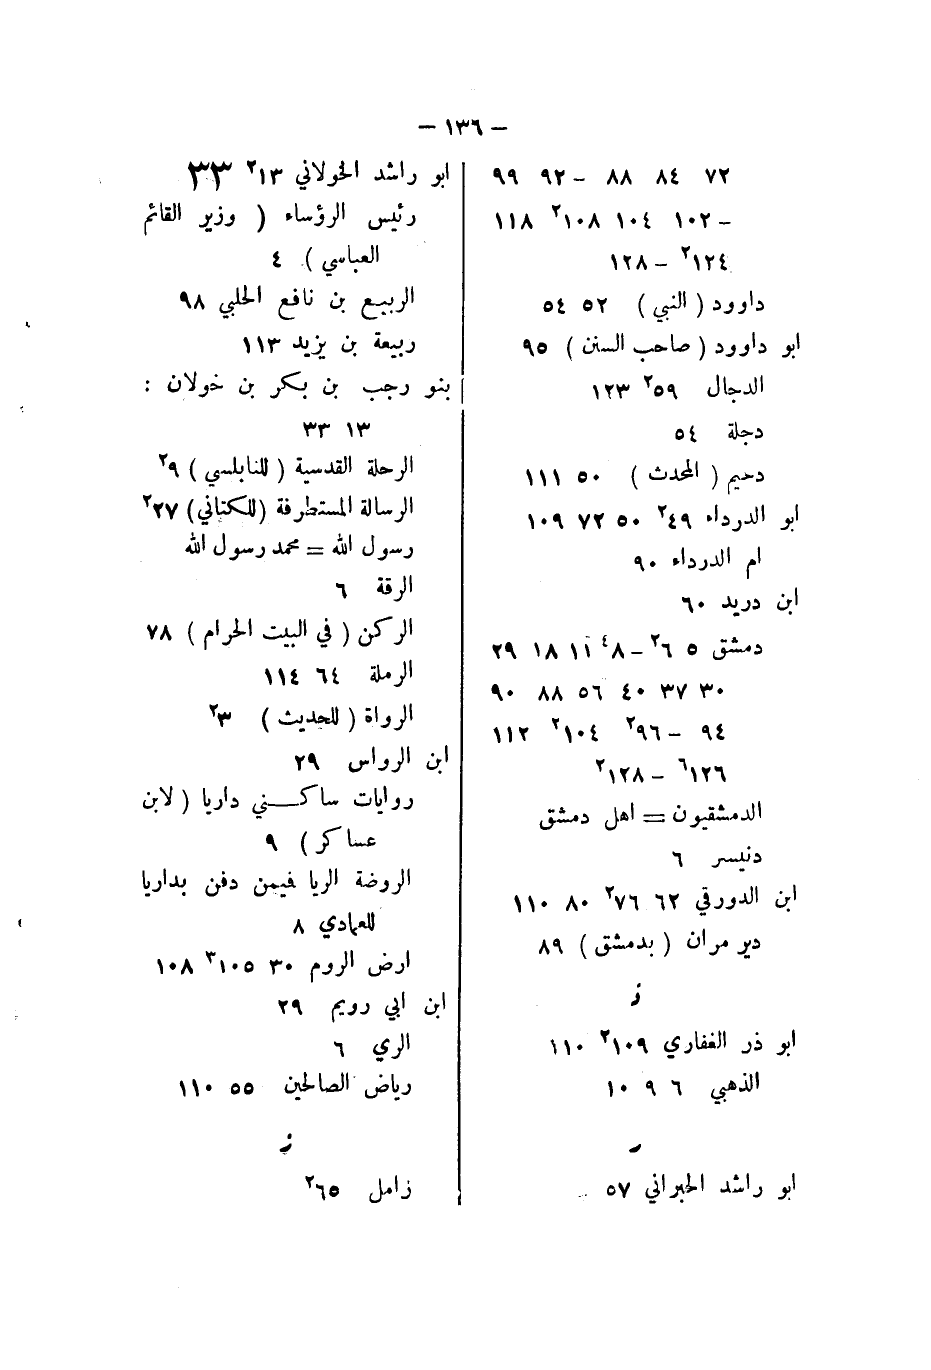 – ١٣٦ –
٧٢ ٨٤ ٨٨ – ٩٢ ٩٩
– ١٠٢ ١٠٤ ١٠٨² ١١٨
١٢٤² – ١٢٨
داوود ( النبي ) ٥٢ ٥٤
ابو داوود ( صاحب السنن ) ٩٥
الدجال ٥٩² ١٢٣
دجلة ٥٤
دحيم ( المحدث ) ٥٠ ١١١
ابو الدرداء ٤٩² ٥٠ ٧٢ ١٠٩
ام الدرداء ٩٠
ابن دريد ٦٠
دمشق ٥ ٦² – ٨⁴ ١١ ١٨ ٢٩
٣٠ ٣٧ ٤٠ ٥٦ ٨٨ ٩٠
٩٤ – ٩٦² ١٠٤² ١١٢
١٢٦⁶ – ١٢٨²
الدمشقيون = اهل دمشق
دنيسر ٦
ابن الدورقي ٦٢ ٧٦² ٨٠ ١١٠
دير مران ( بدمشق ) ٨٩
ذ
ابو ذر الغفاري ١٠٩² ١١٠
الذهبي ٦ ٩ ١٠
ر
ابو راشد الحبراني ٥٧
ابو راشد الخولاني ١٣² ٣٣
رئيس الرؤساء ( وزير القائم
العباسي ) ٤
الربيع بن نافع الحلبي ٩٨
ربيعة بن يزيد ١١٣
بنو رجب بن بكر بن خولان :
١٣ ٣٣
الرحلة القدسية ( للنابلسي ) ٩²
الرسالة المستطرفة (للكتاني) ٢٧²
رسول الله = محمد رسول الله
الرقة ٦
الركن ( في البيت الحرام ) ٧٨
الرملة ٦٤ ١١٤
الرواة ( للحديث ) ٣²
ابن الرواس ٢٩
روايات ساكني داريا ( لابن
عساكر ) ٩
الروضة الريا فيمن دفن بداريا
للعمادي ٨
ارض الروم ٣٠ ١٠٥³ ١٠٨
ابن ابي رويم ٢٩
الري ٦
رياض الصالحين ٥٥ ١١٠
ز
زامل ٦٥²